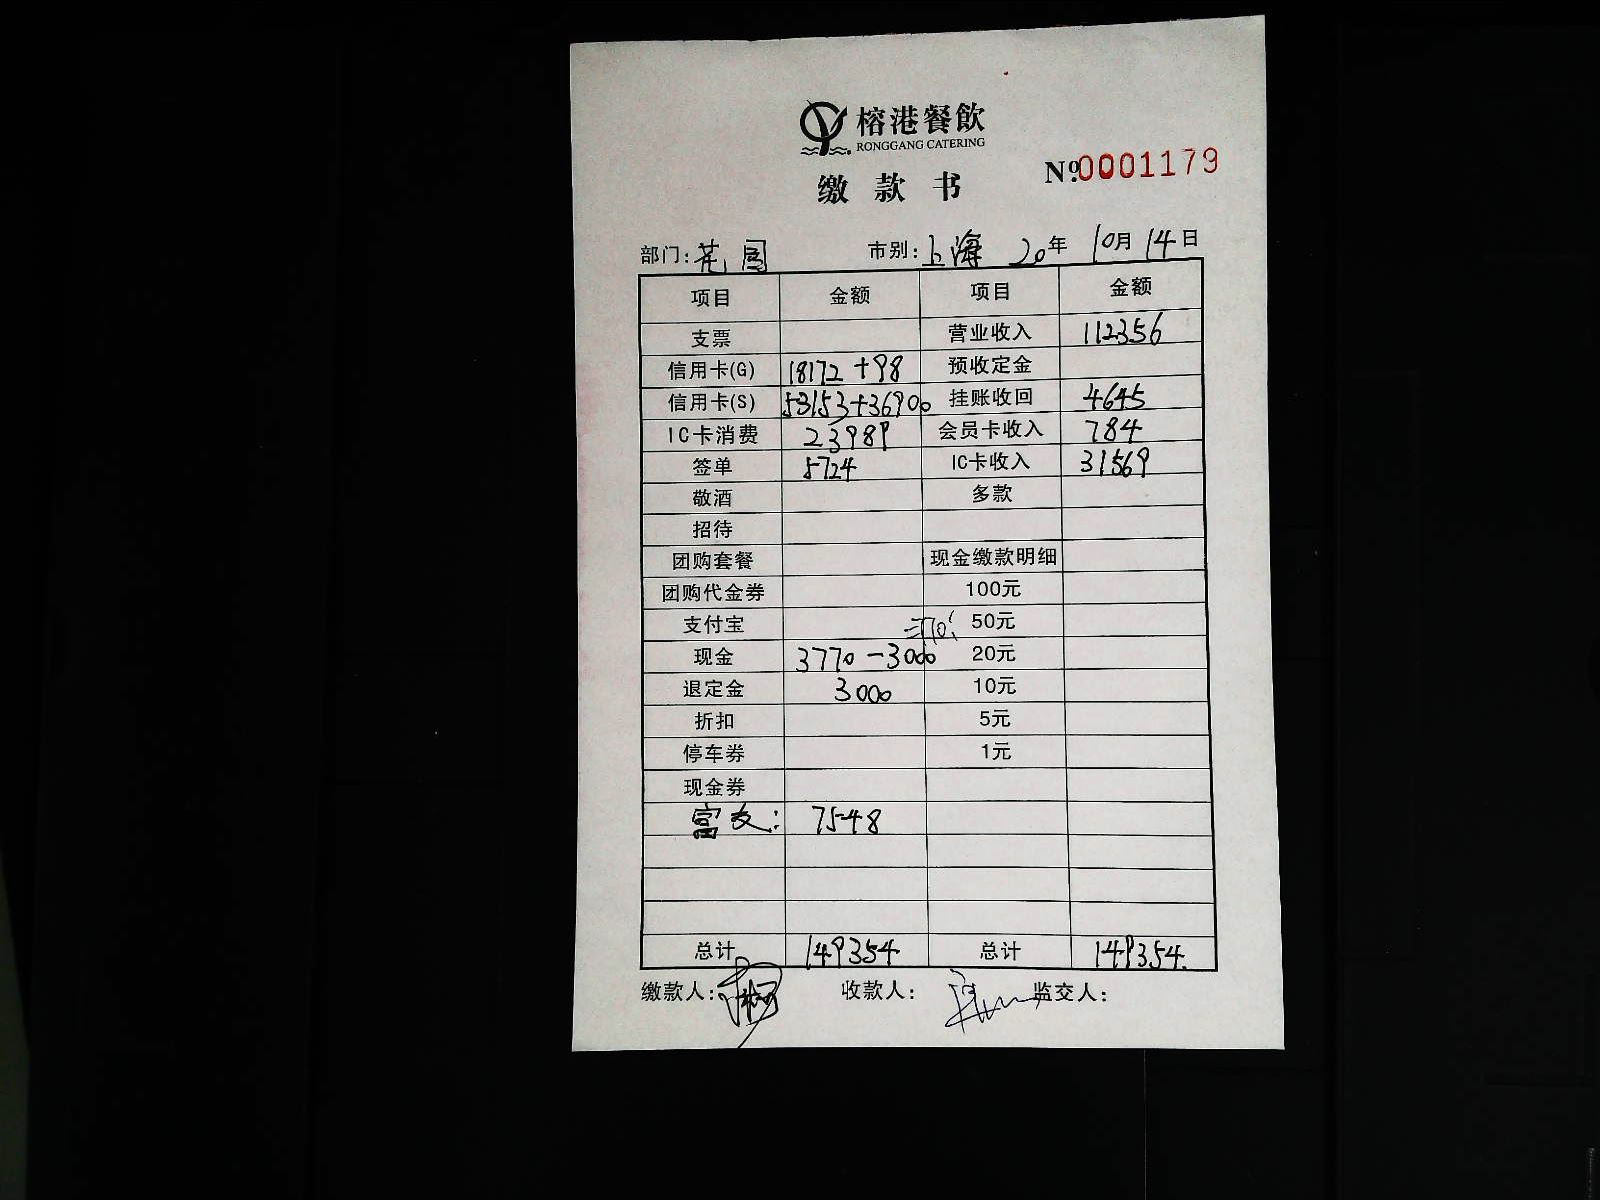 榕港餐飲
RONGGANG CATERING
缴款书
№0001179
部门: 市别: 上海 20年 10月 14日
项目 金额 项目 金额
支票 营业收入 112356
信用卡(G) 18172 +98 预收定金
信用卡(S) 53153+36900 挂账收回 4645
IC卡消费 23989 会员卡收入 784
签单 5724 IC卡收入 31569
敬酒 多款
招待
团购套餐 现金缴款明细
团购代金券 100元
支付宝 50元
现金 3770 -3000 20元
退定金 3000 10元
折扣 5元
停车券 1元
现金券
富友: 7548
总计 149354 总计 149354.
缴款人: 收款人: 监交人: